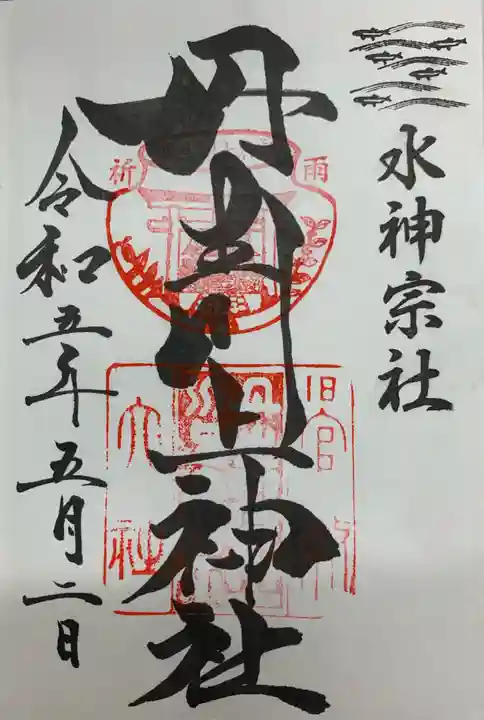 水神宗社
丹生川上神社
令和五年五月二日
祈
雨
旧官
大
社